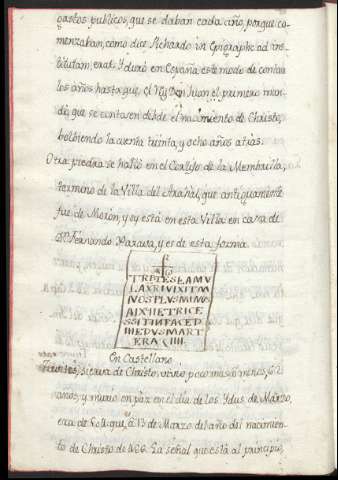 gastos publicos, que se daban cada año, porque co-
menzaban, como dice Richardo in Epigraphe ad
erat. Y duró en España este modo de contar
los años hasta que el Rey Don Juan el primero man-
dó que se contasen desde el nacimiento de Christo,
bolbiendo la cuenta treinta y ocho años atras.
Otra piedra se halló en el de la Membrilla,
termino de la Villa del Arahal, que antiguamente
fue de Moron, y oy está en esta Villa en casa de
Dn. Fernando y es de esta forma.
LAXRIVIXITAN
NOS PLVS MINVS
RECE
SSIT IN PACE
IDVS MART
ERA
En Castellano
sierva de Christo, vivió poco mas o menos
anos, y murio en paz en el dia de los Ydus de Marzo,
era de que es á 13 de Marzo del año del nacimien-
to de Christo de 426. La señal que está al principio,